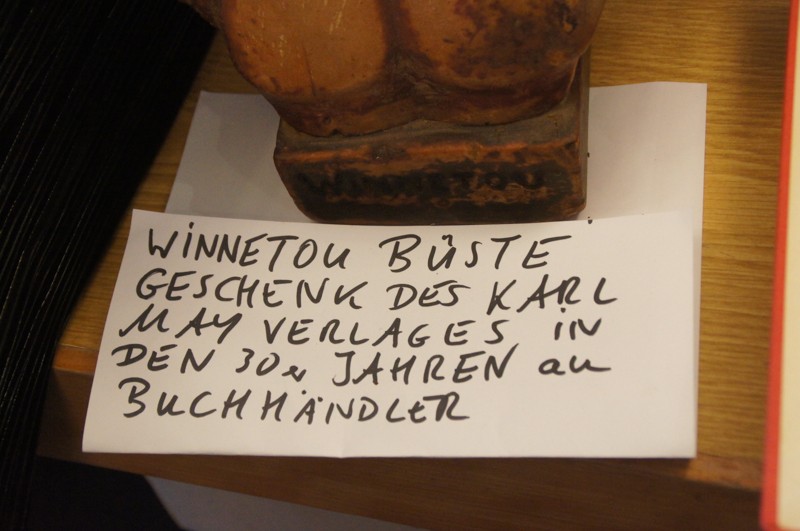 WINNETOU
WINNETOU BÜSTE
GESCHENK DES KARL
MAY VERLAGES IN
DEN 30er JAHREN an
BUCHHÄNDLER